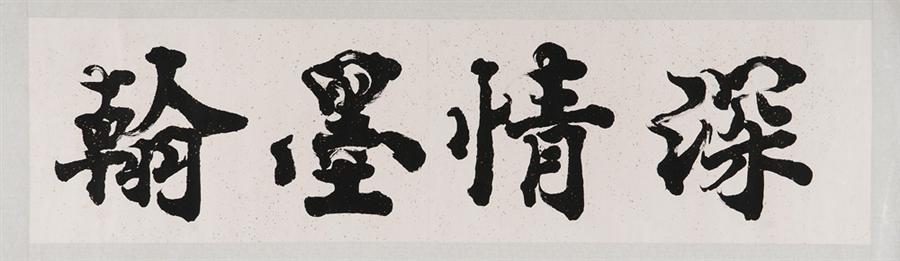 翰墨情深